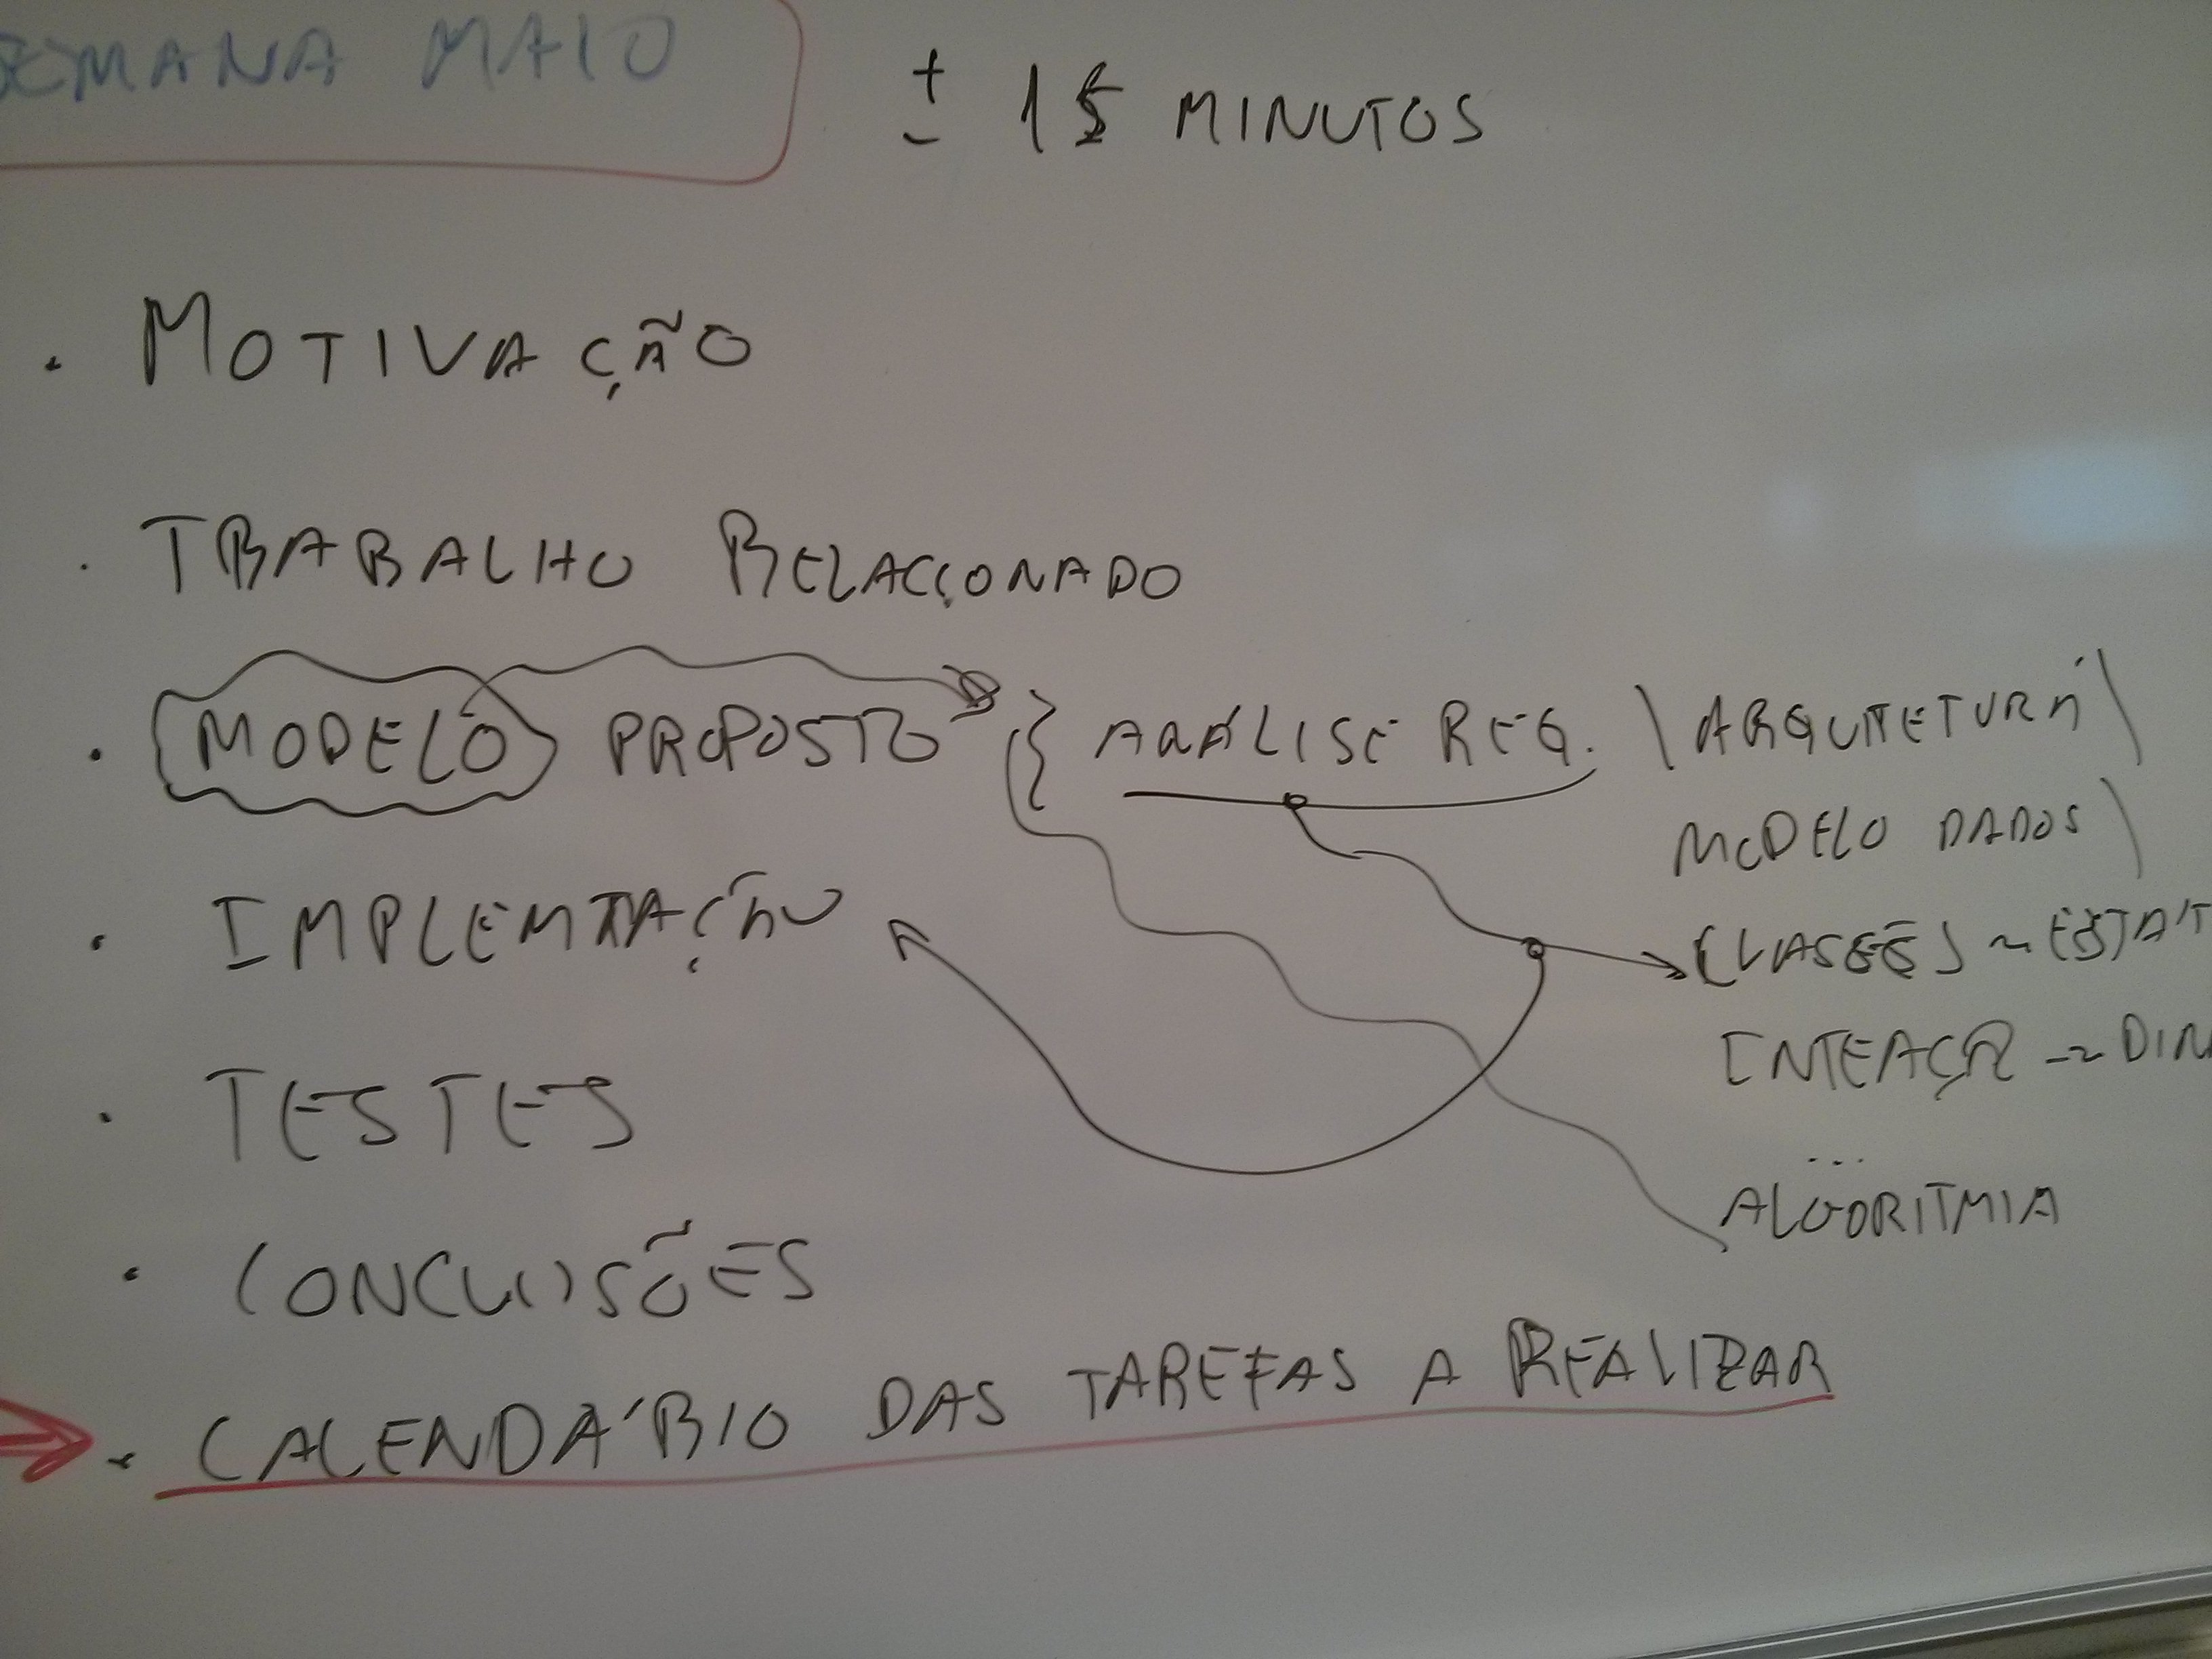 SEMANA MAIO
± 15 MINUTOS
• MOTIVAÇÃO
• TRABALHO RELACIONADO
• MODELO PROPOSTO { ANÁLISE REQ. \ ARQUITETURA \
MODELO DADOS \
CLASSES ~ ESTÁT
• IMPLEMTAÇÃO
INTEAÇÃ → DIN
• TESTES
...
ALGORITMIA
• CONCLUSÕES
• CALENDÁRIO DAS TAREFAS A REALIZAR